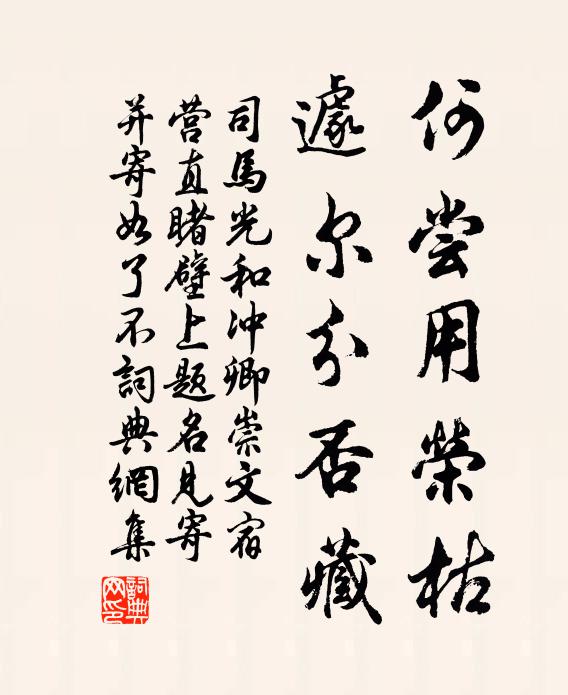 何尝用榮枯
遽尔分否藏
司馬光和冲卿崇文宿
营直睹壁上题名见寄
并寄如了不詞典網集
詞典网印